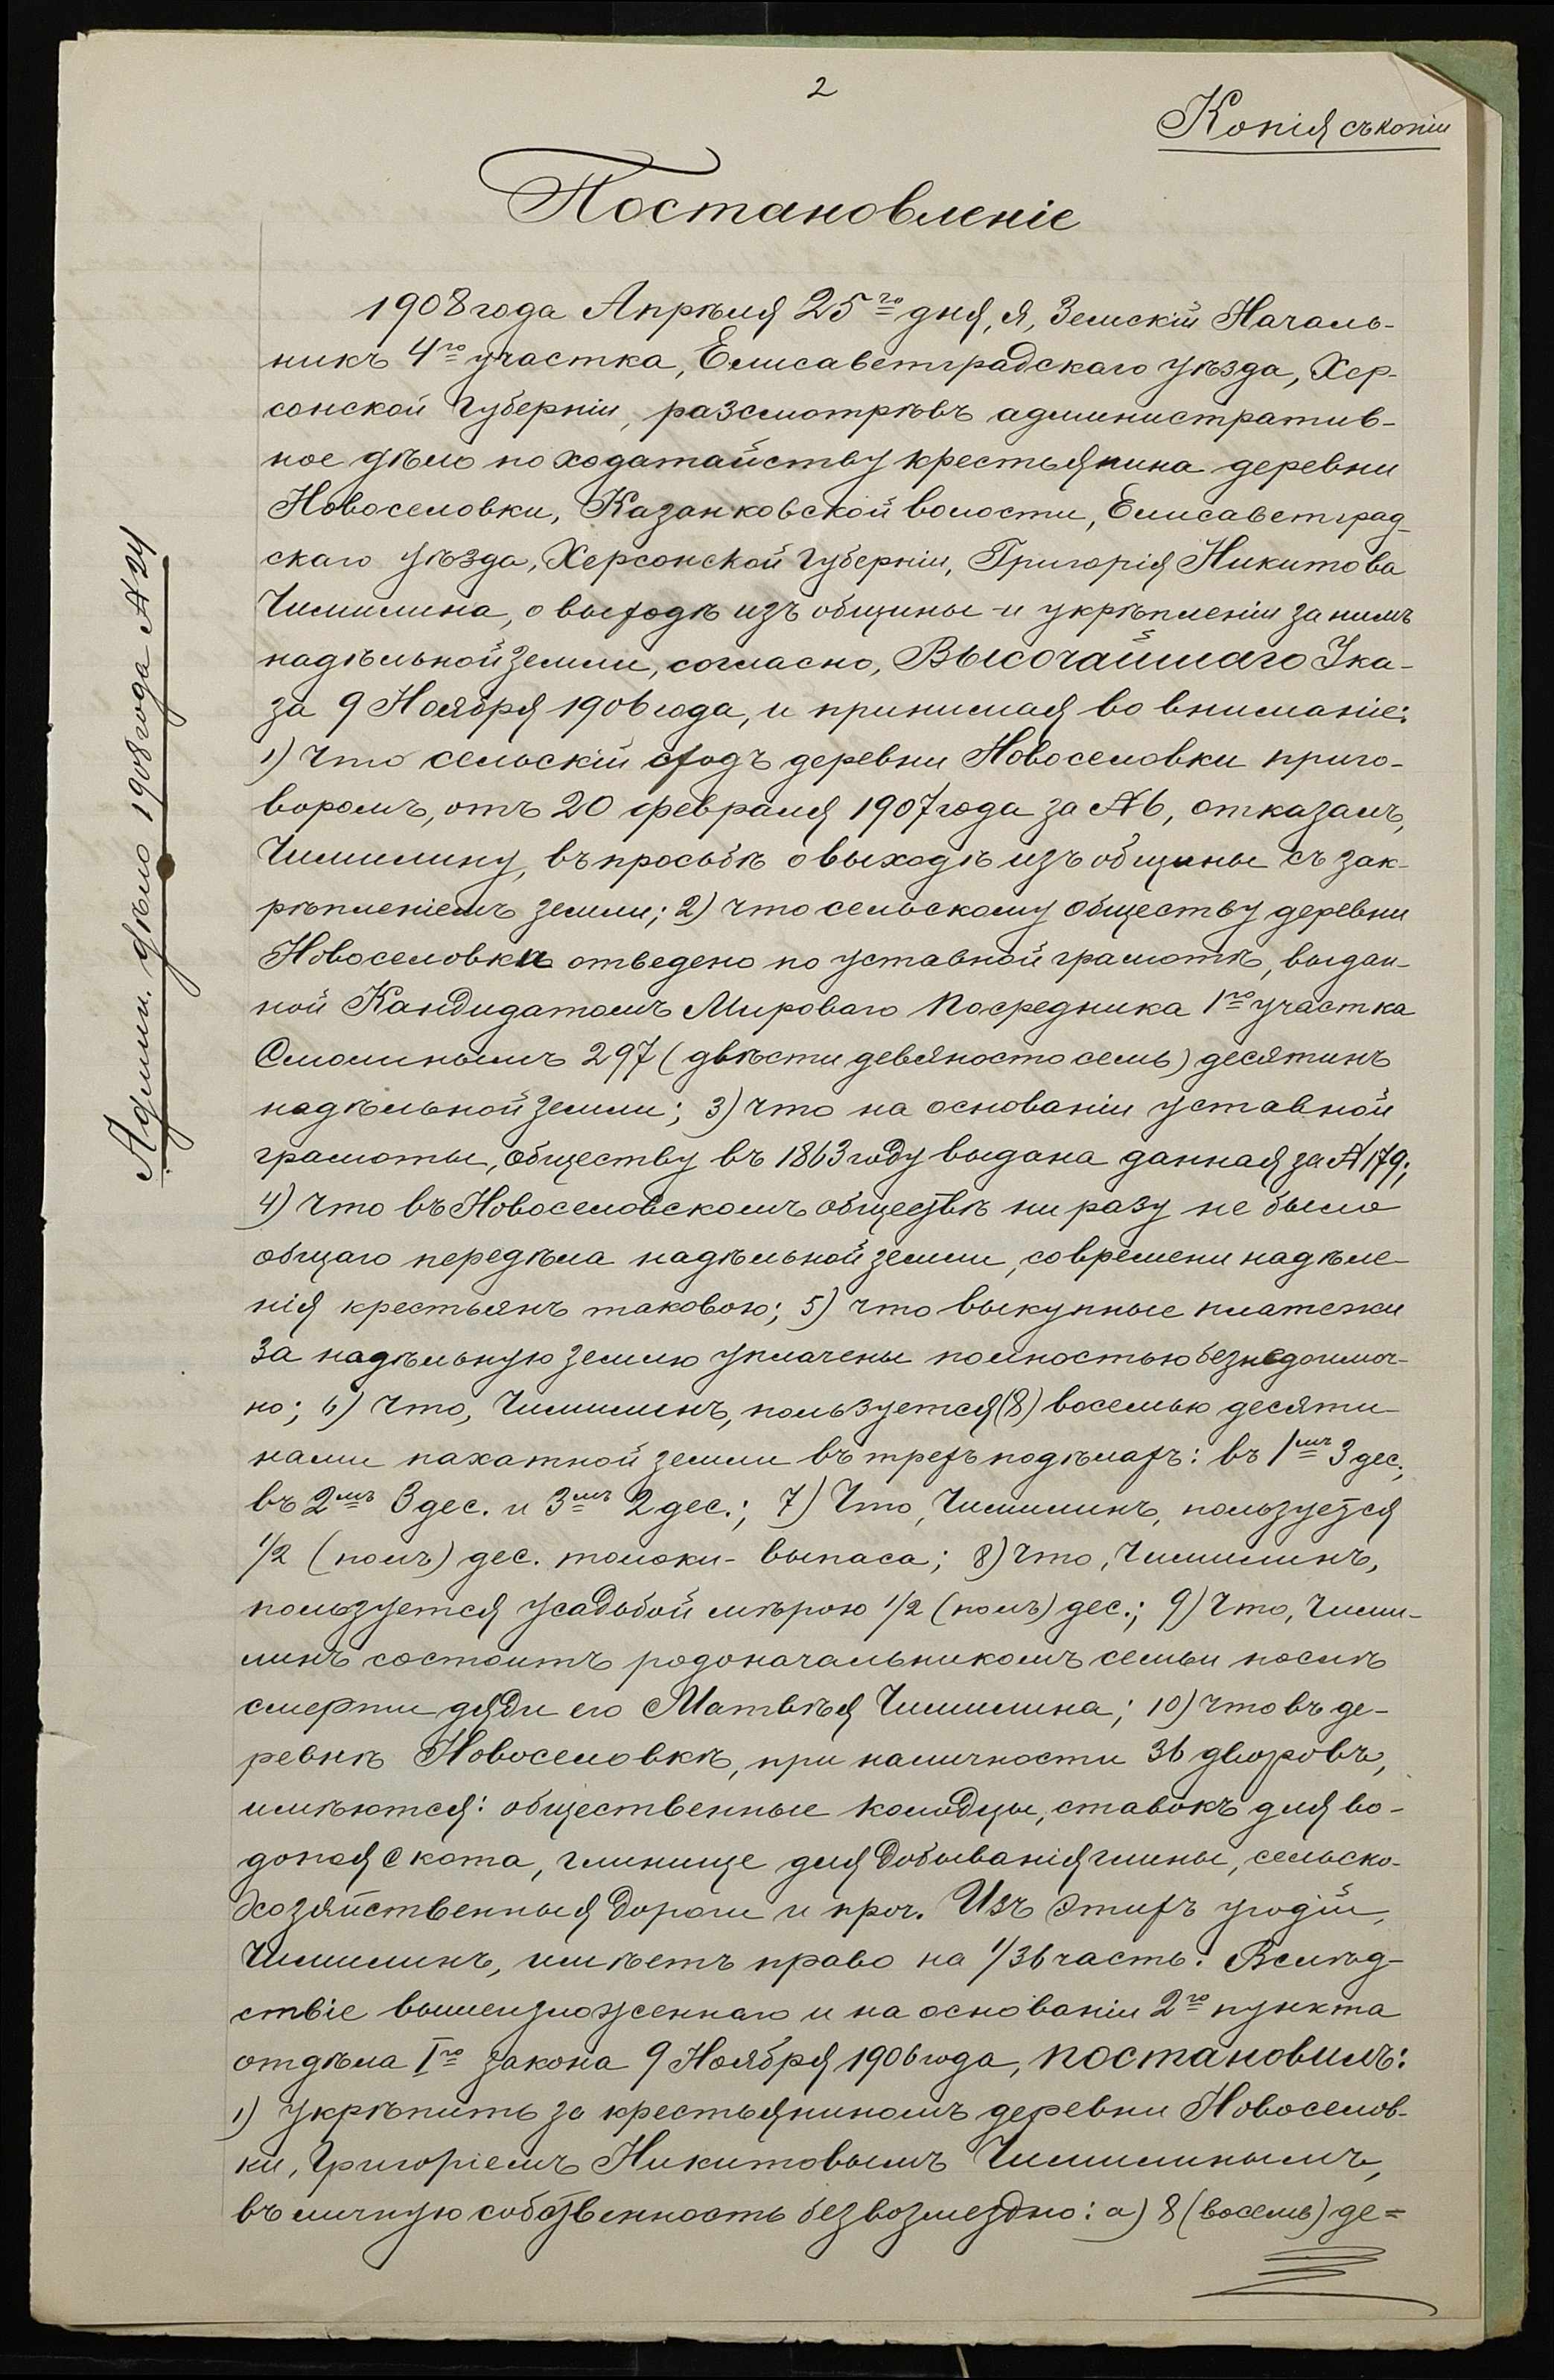 2
Копія съ копіи
Постановленіе
1908 года Апрѣля 25го дня, я, Земскій Началь-
никъ 4го участка, Елисаветградскаго уѣзда, Хер-
сонской Губерніи, разсмотрѣвъ административ-
ное дѣло по ходатайству крестьянина деревни
Новоселовки, Казанковской волости, Елисаветград-
скаго уѣзда, Херсонской Губерніи, Григорія Никитова
Чишилина, о выходѣ изъ общины и укрѣпленіи за нимъ
надѣльной земли, согласно, Высочайшаго Ука-
за 9 Ноября 1906 года, и принимая во вниманіе:
1) Что сельскій сходъ деревни Новоселовки приго-
воромъ, отъ 20 февраля 1907 года за № 6, отказалъ,
Чишилину, въ просьбѣ о выходѣ изъ общины съ зак-
рѣпленіемъ земли; 2) что сельскому обществу деревни
Новоселовки отведено по уставной грамотѣ, выдан-
ной Кандидатомъ Мироваго Посредника 1го участка
297 (двѣсти девяносто семь) десятинъ
надѣльной земли; 3) что на основаніи уставной
грамоты, обществу въ 1863 году выдана данная за № 179;
4) что въ Новоселовскомъ обществѣ ни разу не было
общаго передѣла надѣльной земли, со времени надѣле-
нія крестьянъ таковою; 5) что выкупные платежи
за надѣльную землю уплачены полностью безнедоимоч-
но; 6) Что, Чишилинъ, пользуется (8) восемью десяти-
нами пахатной земли въ трехъ подѣлахъ: въ 1мъ 3 дес.,
въ 2мъ 3 дес. и 3мъ 2 дес.; 7) Что, Чишилинъ, пользуется
1/2 (полъ) дес. толоки - выпаса; 8) Что, Чишилинъ,
пользуется усадьбой мѣрою 1/2 (полъ) дес.; 9) Что, Чиши-
линъ состоитъ родоначальникомъ семьи послѣ
смерти дяди его Матвѣя Чишилина; 10) что въ де-
ревнѣ Новоселовкѣ, при наличности 36 дворовъ,
имѣются: общественные колодцы, ставокъ для во-
допоя скота, глинище для добыванія глины, сельско-
хозяйственныя дороги и проч. Изъ этихъ угодій,
Чишилинъ, имѣетъ право на 1/36 часть. Вслѣд-
ствіе вышеизложеннаго и на основаніи 2го пункта
отдѣла Iго закона 9 Ноября 1906 года, постановилъ:
1) Укрѣпить за крестьяниномъ деревни Новоселов-
ки, Григоріемъ Никитовымъ Чишилинымъ,
въ личную собственность безвозмездно: а) 8 (восемь) де=
Админ. дѣло 1908 года № 24